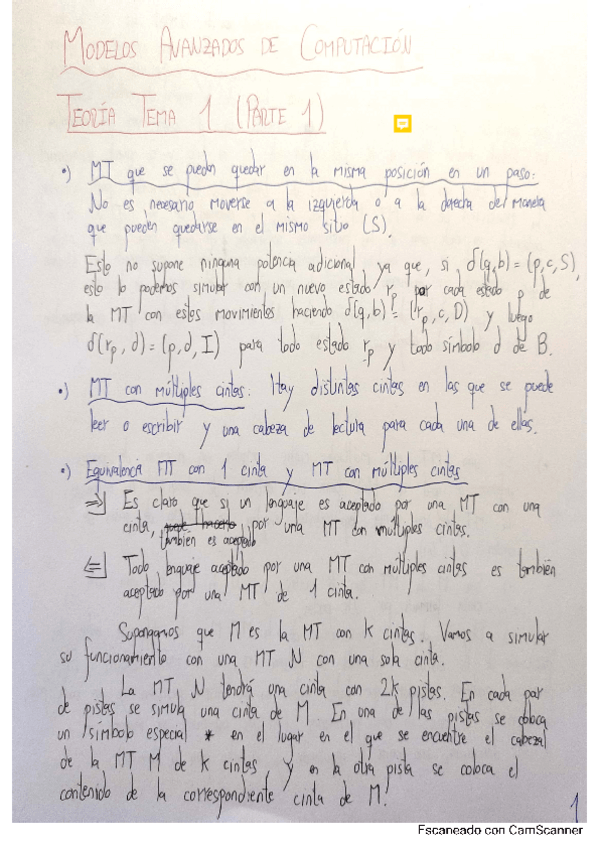 MODELOS AVANZADOS DE COMPUTACIÓN
TEORÍA TEMA 1 (PARTE 1)
•) MT que se pueden quedar en la misma posición en un paso:
No es necesario moverse a la izquierda o a la derecha del manera
que pueden quedarse en el mismo sitio (S).
Esto no supone ninguna potencia adicional, ya que, si δ(q,b) = (p,c,S),
esto lo podemos simular con un nuevo estado rp por cada estado p de
la MT con estos movimientos haciendo δ(q,b) = (rp,c,D) y luego
δ(rp,d) = (p,d,I) para todo estado rp y todo símbolo d de B.
•) MT con múltiples cintas: Hay distintas cintas en las que se puede
leer o escribir y una cabeza de lectura para cada una de ellas.
•) Equivalencia MT con 1 cinta y MT con múltiples cintas
⇒) Es claro que si un lenguaje es aceptado por una MT con una
cinta, también es aceptado por una MT con múltiples cintas.
⇐) Todo lenguaje aceptado por una MT con múltiples cintas es también
aceptado por una MT de 1 cinta.
Supongamos que M es la MT con k cintas. Vamos a simular
su funcionamiento con una MT N con una sola cinta.
La MT N tendrá una cinta con 2k pistas. En cada par
de pistas se simula una cinta de M. En una de las pistas se coloca
un símbolo especial * en el lugar en el que se encuentre el cabezal
de la MT M de k cintas, y en la otra pista se coloca el
contenido de la correspondiente cinta de M.
1
Escaneado con CamScanner